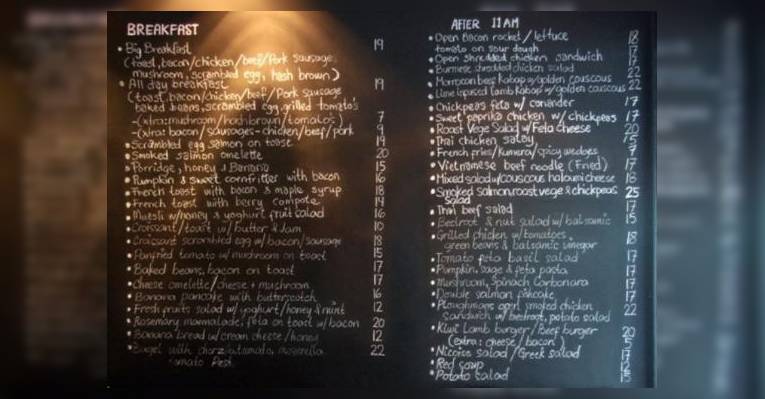 BREAKFAST
• Big Breakfast 19
(toast, bacon/chicken/beef/Pork sausage,
mushroom, scrambled egg, hash brown)
• All day breakfast 19
(toast, bacon/chicken/beef/Pork sausage
baked beans, scrambled egg, grilled tomato's
-(xtra: mushroom/hashbrown/tomato's) 7
-(xtra: bacon/sausages-chicken/beef/pork 9
• Scrambled egg salmon on toast 19
• Smoked salmon omelette 20
• Porridge, honey & Banana 15
• Pumpkin & sweet cornfritter with bacon 16
• French toast with bacon & maple syrup 18
• French toast with berry compote 14
• Muesli w/honey & yoghurt fruit salad 16
• Croissant/toast w/ butter & Jam 10
• Croissant scrambled egg w/ bacon/sausage 18
• Panfried tomato w/ mushroom on toast 15
• Baked beans, bacon on toast 17
• Cheese omelette/cheese + mushroom 17
• Banana pancake with butterscotch 16
• Fresh fruits salad w/ yoghurt/honey & mint 12
• Rosemary marmalade, feta on toast w/ bacon 20
• Banana bread w/ cream cheese/honey 12
• Bagel with 22
AFTER 11AM
• Open Bacon rocket/lettuce 18
tomato on sour dough 17
• Open shredded chicken sandwich 17
• Burmese shredded chicken salad 22
• Moroccan beef Kabab w/golden couscous 22
• Lime infused lamb Kabab w/golden couscous
• Chickpeas feta w/ coriander 17
• Sweet paprika chicken w/ chickpeas 17
• Roast Vege Salad w/ Feta cheese 20
• Thai chicken satay 15
• French fries/kumera/spicy wedges 7
• Vietnamese beef noodle (Fried) 17
• Mixed salad w/couscous haloumi cheese 16
• Smoked salmon, roast vege & chickpeas 25
Salad
• Thai beef salad 17
• Beetroot & nut salad w/ balsamic 15
• Grilled chicken w/tomatoes, 18
green beans & balsamic vinegar
• Tomato feta basil salad 17
• Pumpkin, sage & feta pasta 17
• Mushroom, Spinach Carbonara 17
• Double salmon pancake 17
• Ploughmans smoked chicken 22
sandwich w/ beetroot, potato salad
• Kiwi Lamb burger/Beef burger 20
(extra: cheese/bacon) 5
• Nicoise salad/Greek salad 17
• Red soup 12
• Potato salad 15